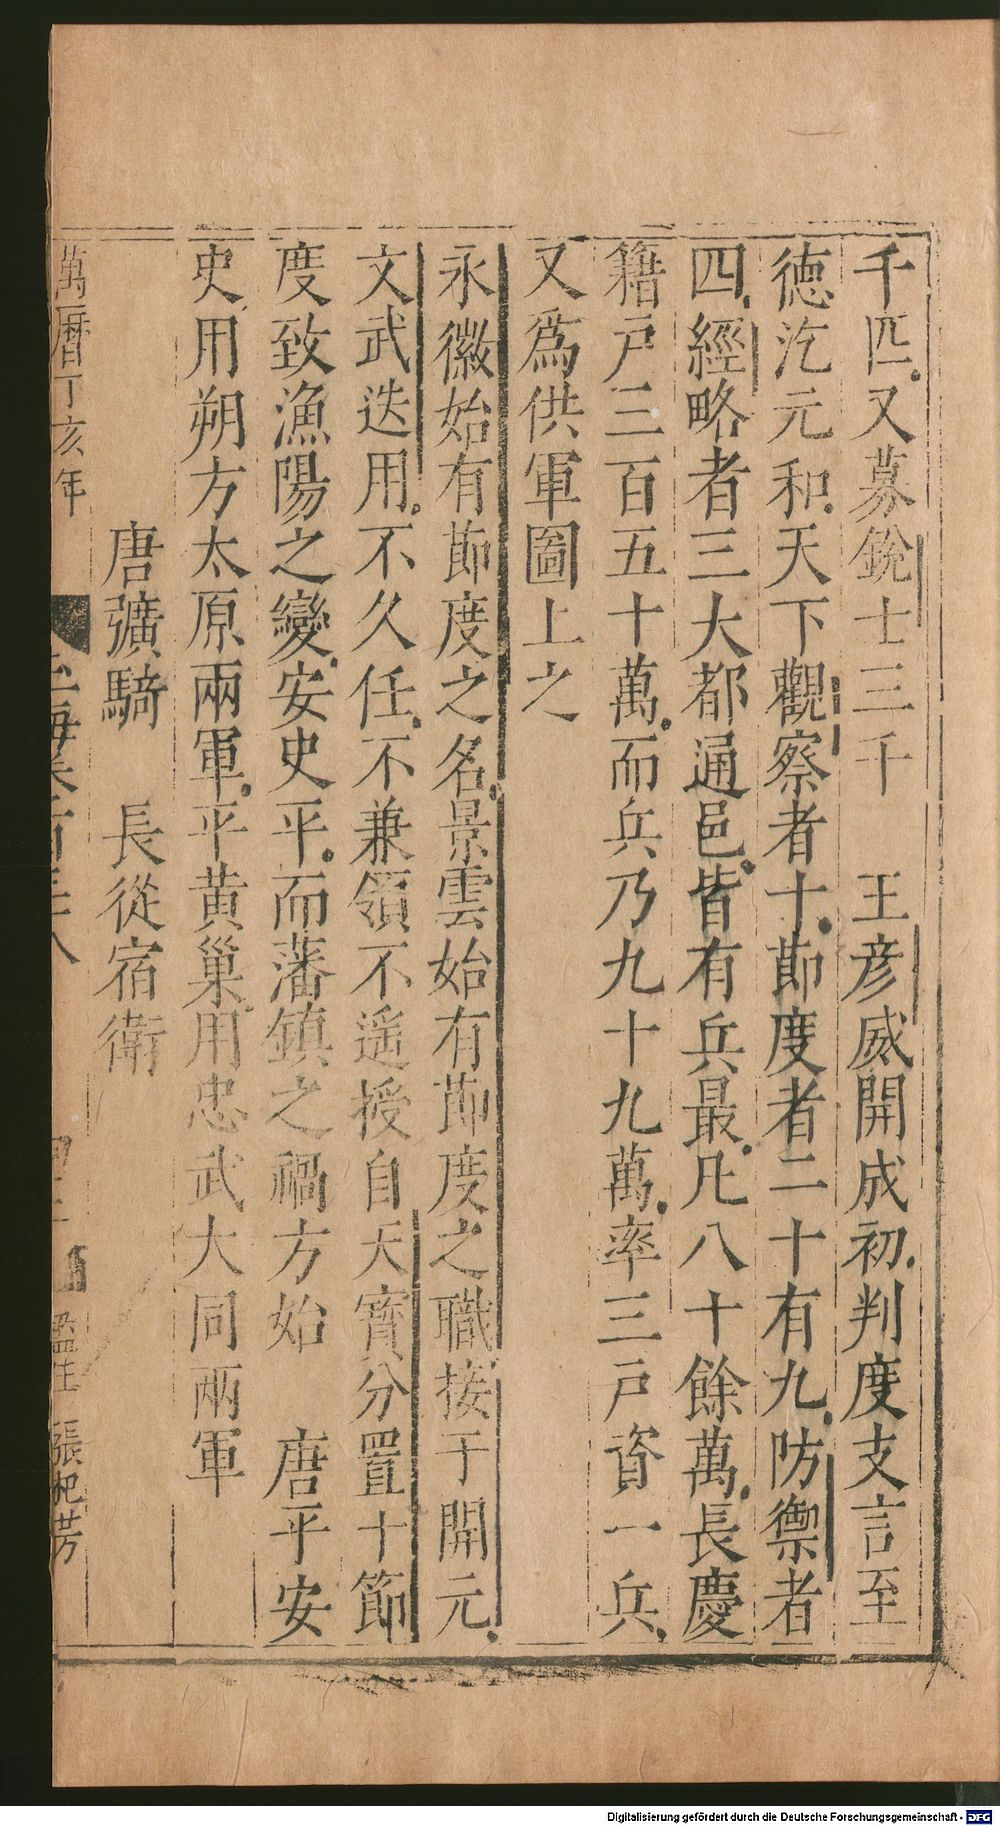 千匹又募銳士三千　王彦威開成初判度支言至
德汔元和天下觀察者十節度者二十有九防禦者
四經略者三大都通邑皆有兵最凡八十餘萬長慶
籍戸三百五十萬而兵乃九十九萬率三戸資一兵
又爲供軍圖上之
永徽始有節度之名景雲始有節度之職接于開元
文武迭用不久任不兼領不遥授自天寳分置十節
度致漁陽之變安史平而藩鎮之禍方始　唐平安
史用朔方太原兩軍平黄巢用忠武大同兩軍
唐彍騎　長從宿衛
萬曆丁亥年
玉海卷百三十八
監生張杞芳
Digitalisierung gefördert durch die Deutsche Forschungsgemeinschaft - DFG